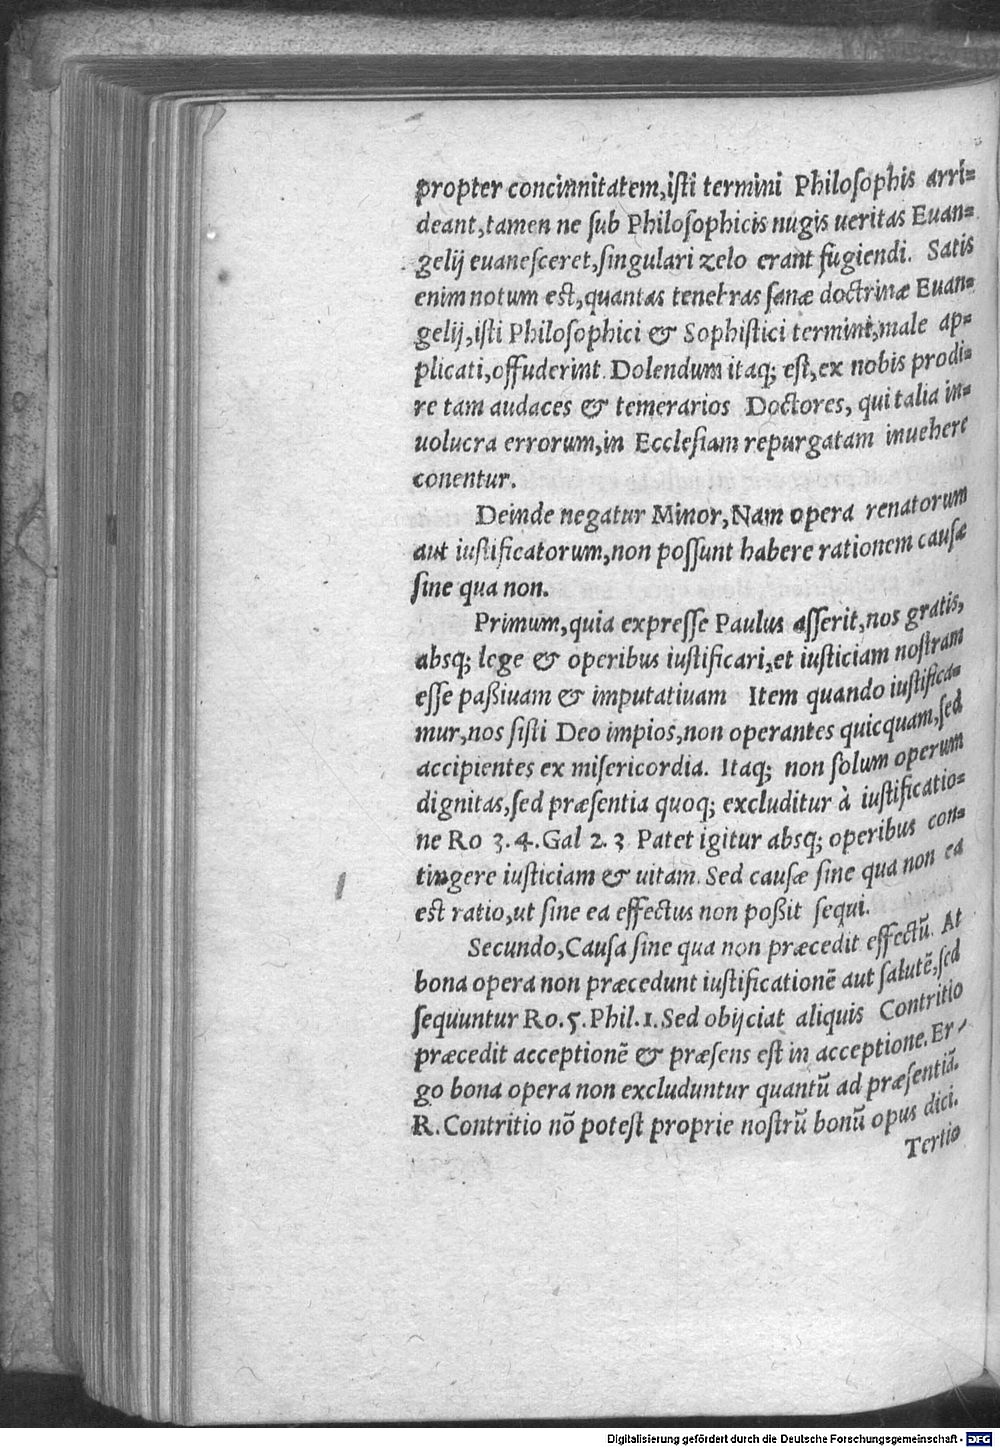 propter concinnitatem,iſti termini Philoſophis arri=
deant,tamen ne ſub Philoſophicis nugis ueritas Euan=
gelij euaneſceret,ſingulari zelo erant fugiendi. Satis
enim notum eſt,quantas tenebras ſanæ doctrinæ Euan=
gelij,iſti Philoſophici & Sophiſtici termini,male ap=
plicati,offuderint. Dolendum itaq; eſt,ex nobis prodi=
re tam audaces & temerarios Doctores, qui talia in=
uolucra errorum,in Eccleſiam repurgatam inuehere
conentur.
Deinde negatur Minor,Nam opera renatorum
aut iuſtificatorum,non poſſunt habere rationem cauſæ
ſine qua non.
Primum,quia expreſſe Paulus aſſerit,nos gratis,
absq; lege & operibus iuſtificari,et iuſticiam noſtram
eſſe paßiuam & imputatiuam Item quando iuſtifica=
mur,nos ſiſti Deo impios,non operantes quicquam,ſed
accipientes ex miſericordia. Itaq; non ſolum operum
dignitas,ſed præſentia quoq; excluditur à iuſtificatio=
ne Ro 3.4.Gal 2.3 Patet igitur absq; operibus con=
tingere iuſticiam & uitam. Sed cauſæ ſine qua non ea
eſt ratio,ut ſine ea effectus non poßit ſequi.
Secundo,Cauſa ſine qua non præcedit effectū. At
bona opera non præcedunt iuſtificationē aut ſalutē,ſed
ſequuntur Ro.5.Phil.1.Sed obijciat aliquis Contritio
præcedit acceptionē & præſens eſt in acceptione.Er⸗
go bona opera non excluduntur quantū ad præſentiā.
R.Contritio nō poteſt proprie noſtrū bonū opus dici.
Tertio
Digitalisierung gefördert durch die Deutsche Forschungsgemeinschaft - DFG